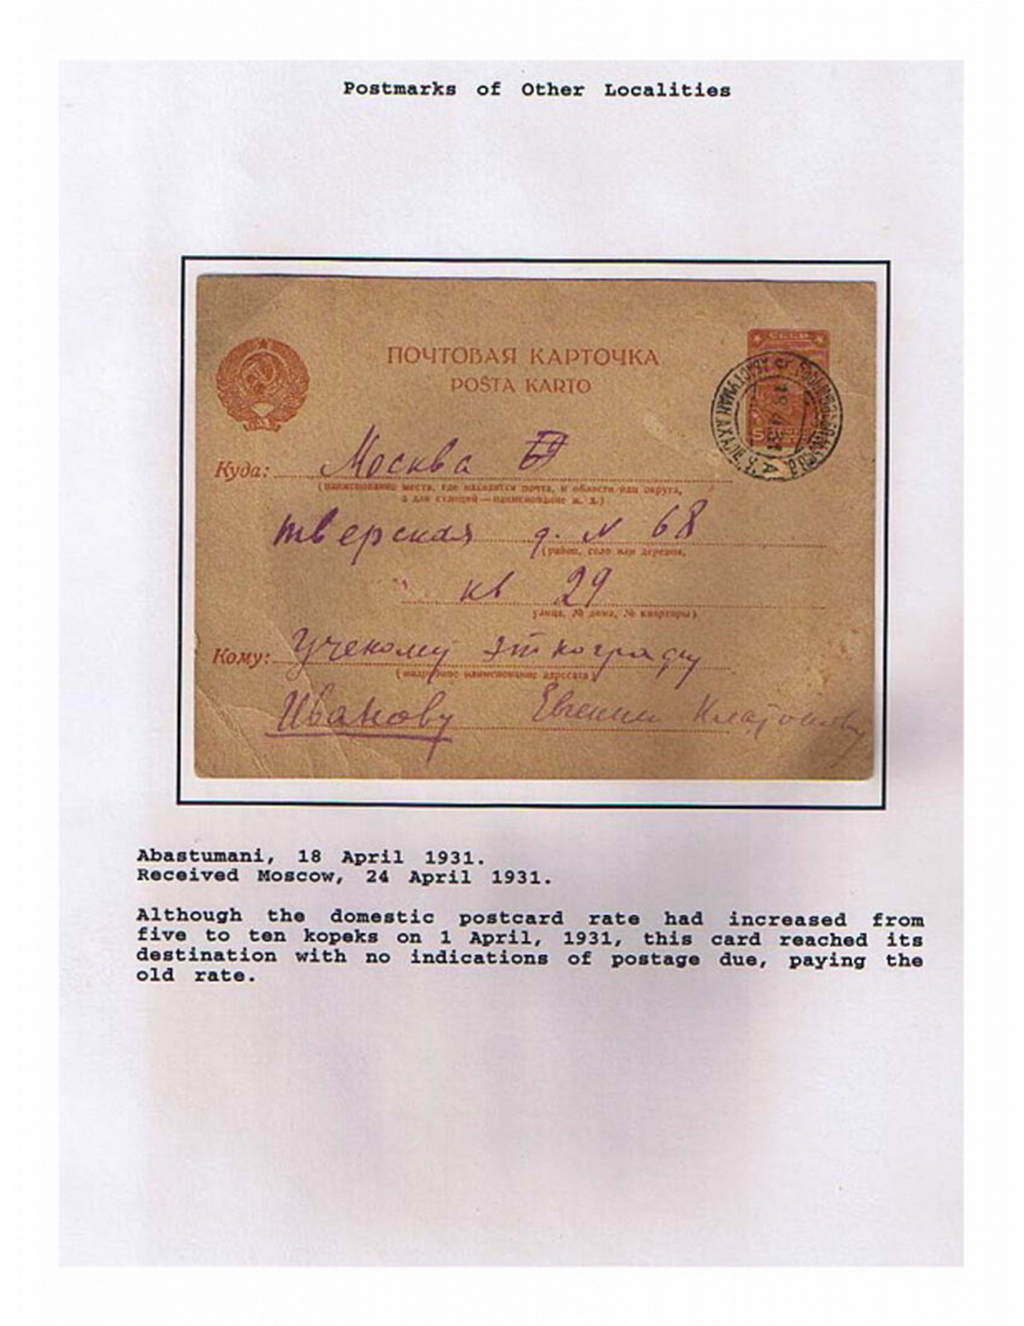 Postmarks of Other Localities
СССР
ПОЧТОВАЯ КАРТОЧКА
POŜTA KARTO
5
Куда: Москва 69
(наименование места, где находится почта, и области или округа,
а для станций—наименование ж. д.)
тверская д. N 68
(район, село или деревня,
кв 29
улица, № дома, № квартиры)
Кому: Ученому этнографу
(подробное наименование адресата)
Иванову Евгению Платоновичу
Abastumani, 18 April 1931.
Received Moscow, 24 April 1931.
Although the domestic postcard rate had increased from
five to ten kopeks on 1 April, 1931, this card reached its
destination with no indications of postage due, paying the
old rate.